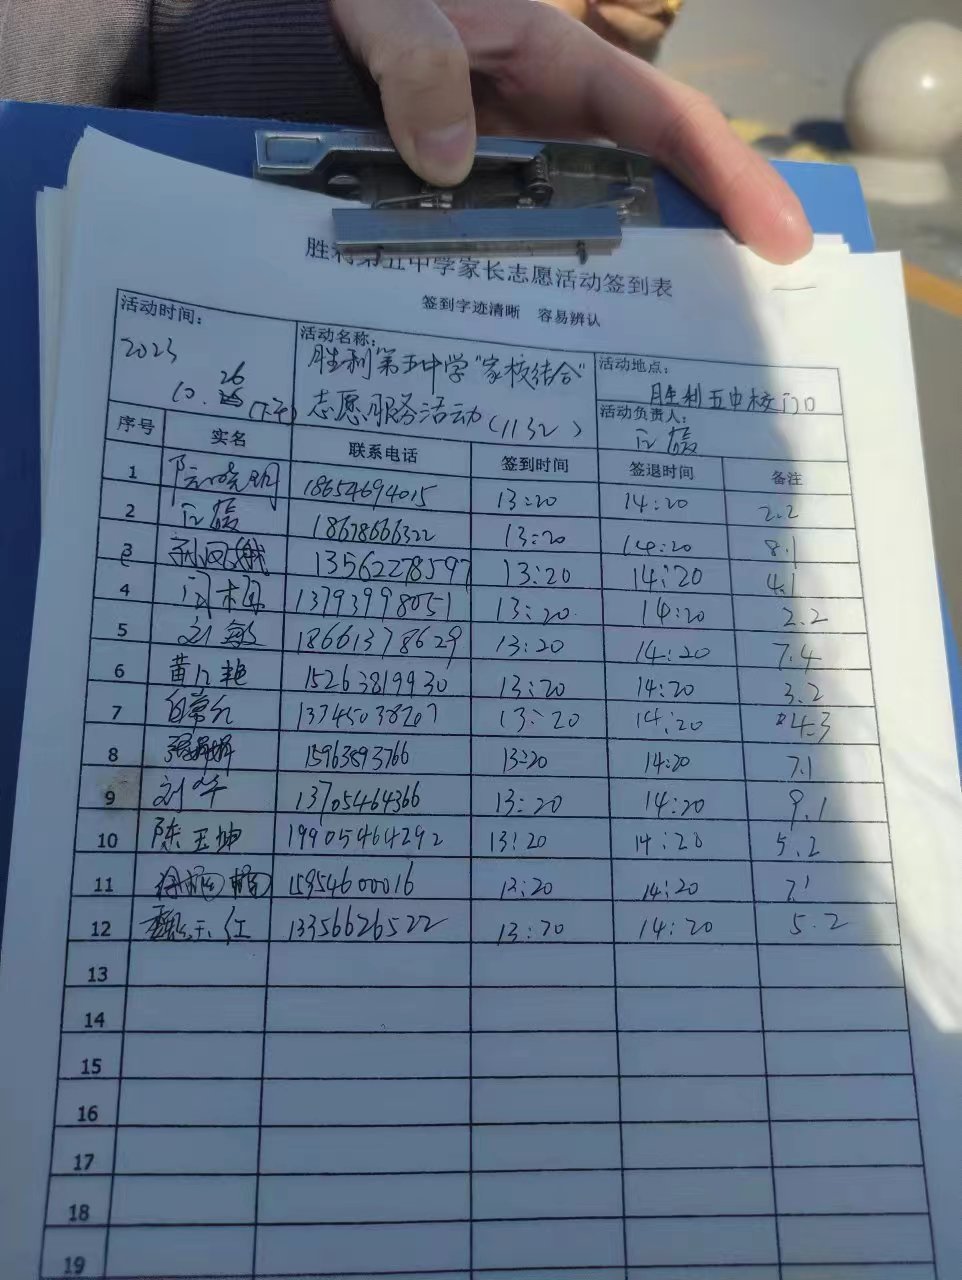 胜利第五中学家长志愿活动签到表
签到字迹清晰 容易辨认
活动时间: 2023 10.26(下午)
活动名称: 胜利第五中学"家校结合"志愿服务活动(1132)
活动地点: 胜利五中校门口
活动负责人:
序号 实名 联系电话 签到时间 签退时间 备注
1 18654694015 13:20 14:20 2.2
2 18678666322 13:20 14:20 8.1
3 13562278597 13:20 14:20 4.1
4 13793998051 13:20 14:20 2.2
5 刘敏 18661378629 13:20 14:20 7.4
6 15263819930 13:20 14:20 3.2
7 13745038207 13:20 14:20 4.3
8 15963893766 13:20 14:20 7.1
9 刘华 13705464366 13:20 14:20 9.1
10 陈玉坤 19905464292 13:20 14:20 5.2
11 15954600016 13:20 14:20
12 13356626522 13:20 14:20 5.2
13
14
15
16
17
18
19